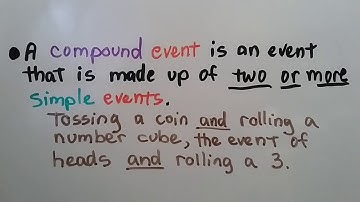 • A compound event is an event
that is made up of two or more
simple events.
Tossing a coin and rolling a
number cube, the event of
heads and rolling a 3.